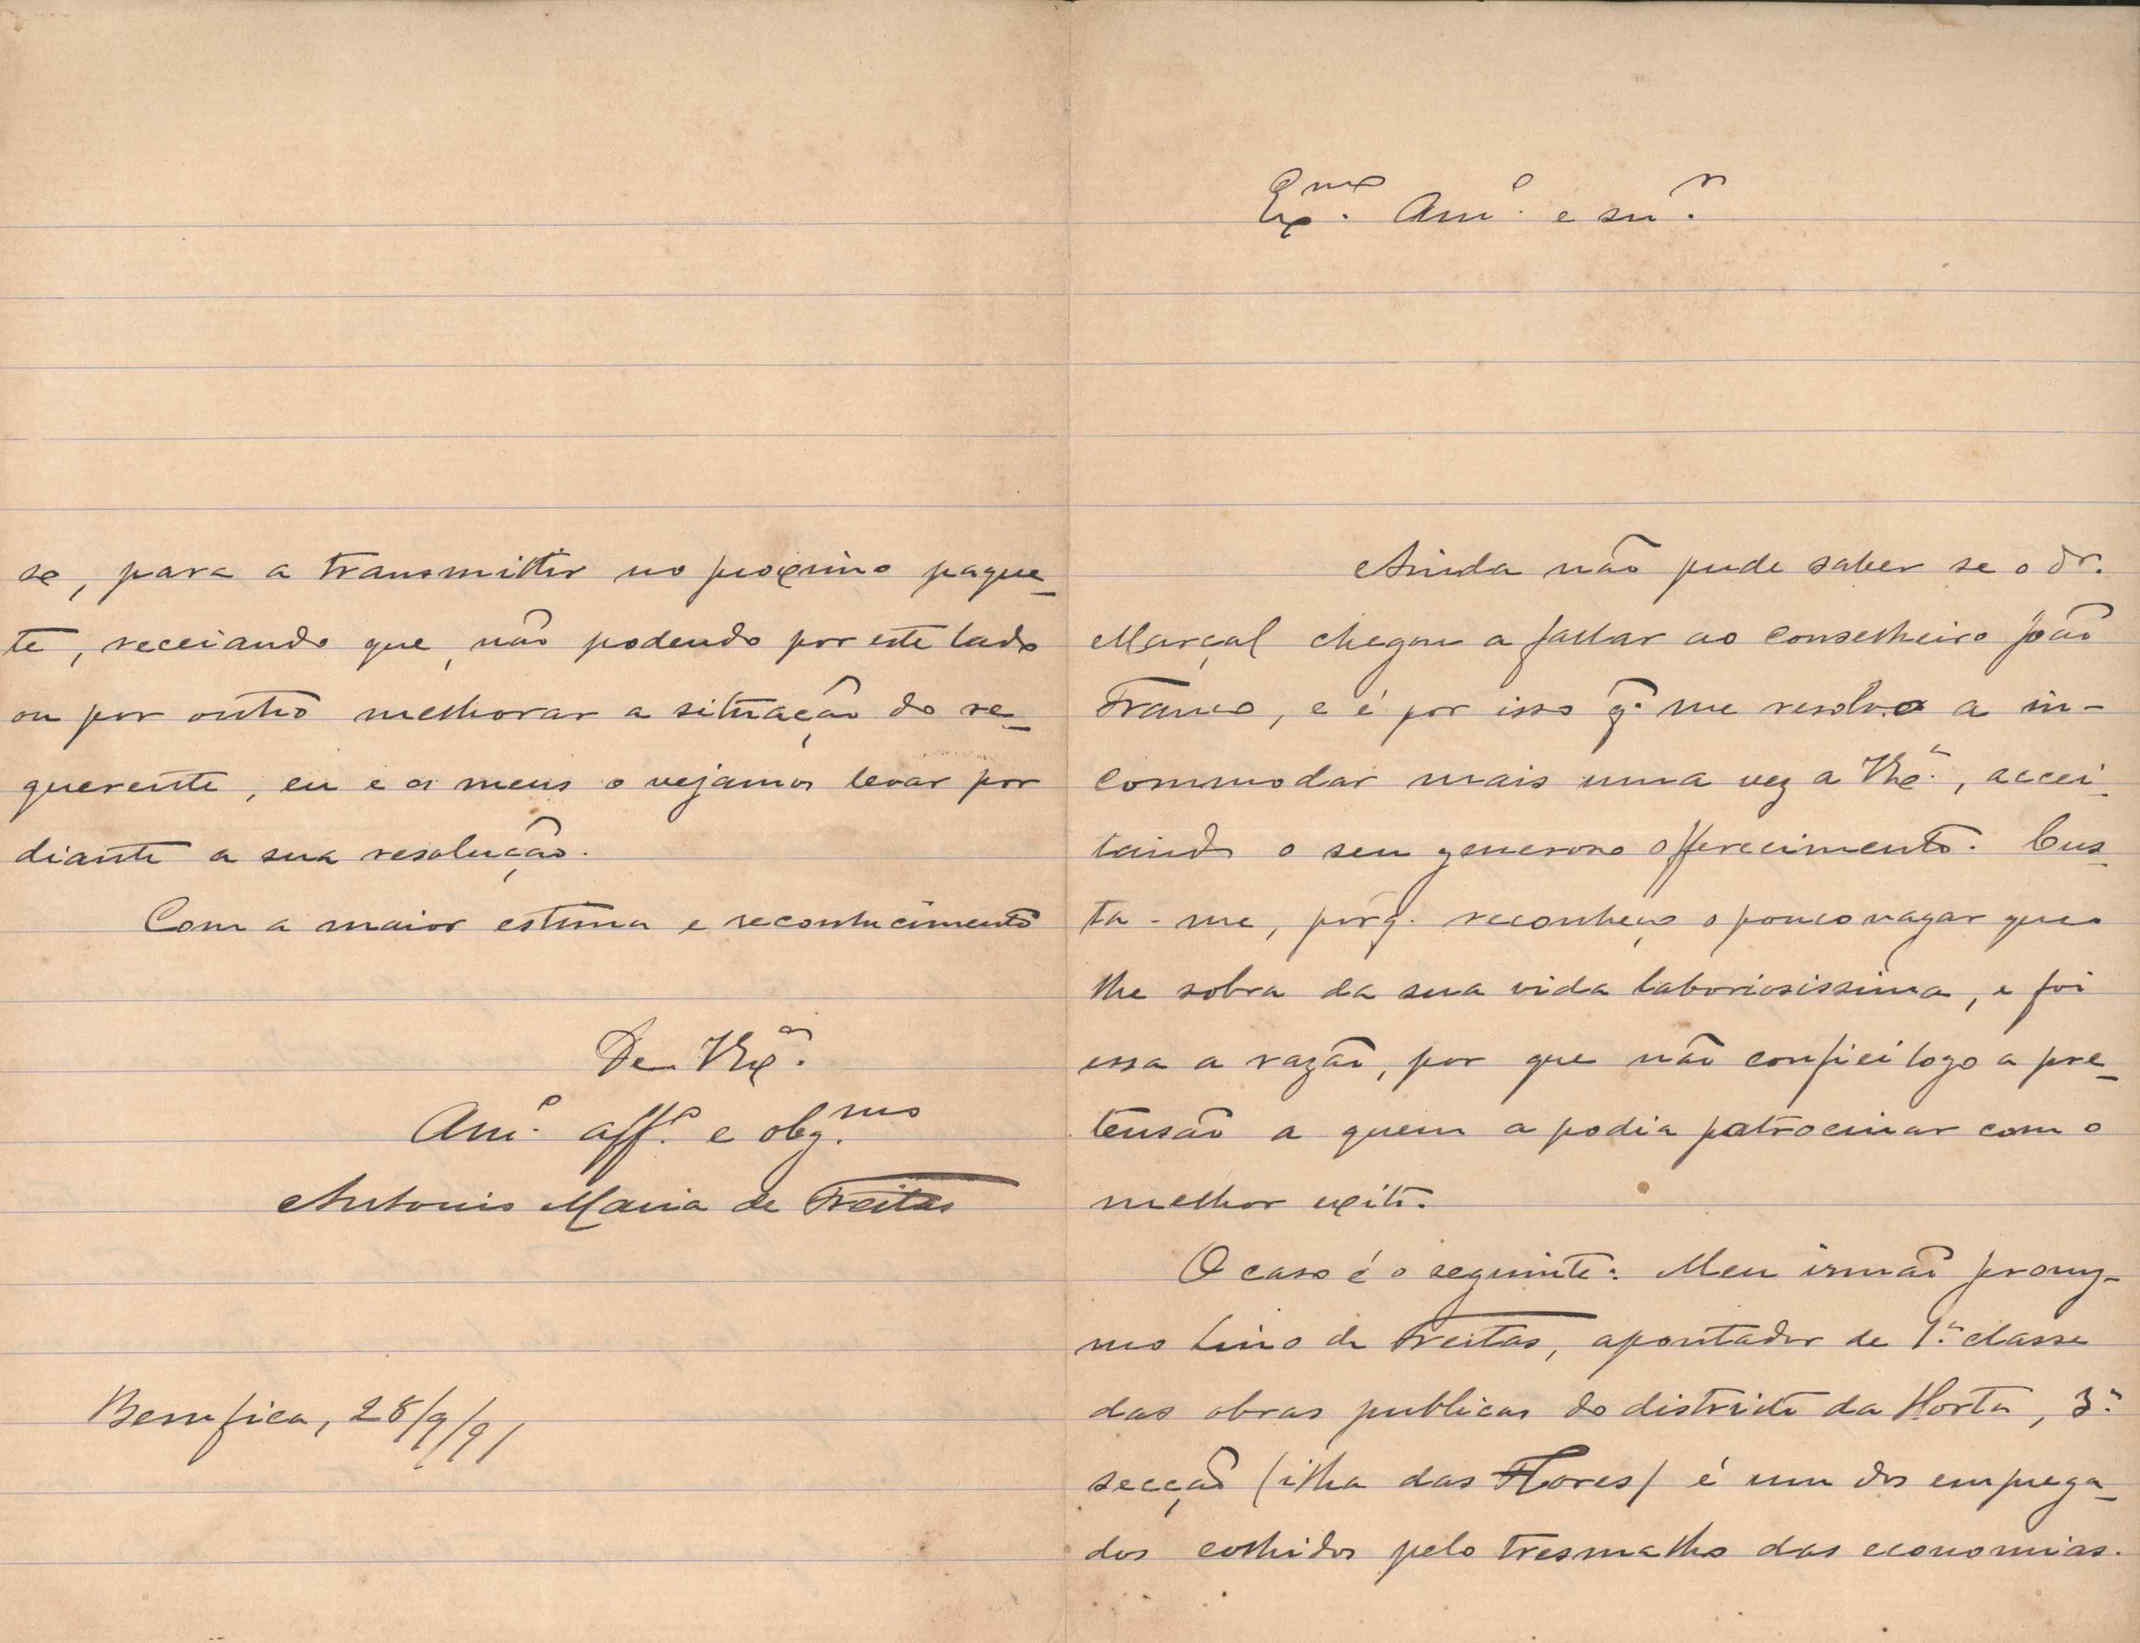 Ex.mo Am.o e sn.r
Ainda não pude saber se o dr.
Marçal chegou a fallar ao conselheiro João
Franco, e é por isso q. me resolvo a in-
commodar mais uma vez a V. Ex.a, accei-
tando o seu generoso offerecimento. Cus-
ta-me, porq. reconheço o pouco vagar que
lhe sobra da sua vida laboriosissima, e foi
essa a razão, por que não confiei logo a pre-
tensão a quem a podia patrocinar com o
melhor exito.
O caso é o seguinte: Meu irmão Jerony-
mo Lino de Freitas, apontador de 1.a classe
das obras publicas do districto da Horta, 3.a
secção (ilha das Flores) é um dos emprega-
dos colhidos pelo tresmalho das economias.
se, para a transmittir no proximo paque-
te, receiando que, não podendo por este lado
ou por outro melhorar a situação do re-
querente, eu e os meus o vejamos levar por
diante a sua resolução.
Com a maior estima e reconhecimento
De V. Ex.a
Am.o aff.o e obg.mo
Antonio Maria de Freitas
Bemfica, 28/9/91